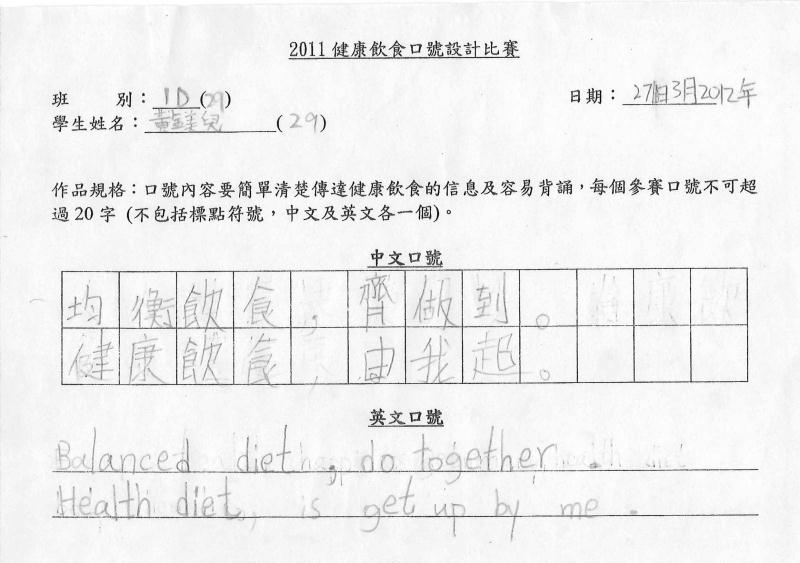 2011 健康飲食口號設計比賽
班　　別：1D(29)
日期：27日3月2012年
學生姓名：黃美兒(29)
作品規格：口號內容要簡單清楚傳達健康飲食的信息及容易背誦，每個參賽口號不可超
過20字 (不包括標點符號，中文及英文各一個)。
中文口號
均衡飲食，齊做到。
健康飲食，由我起。
英文口號
Balanced diet, do together.
Health diet, is get up by me.